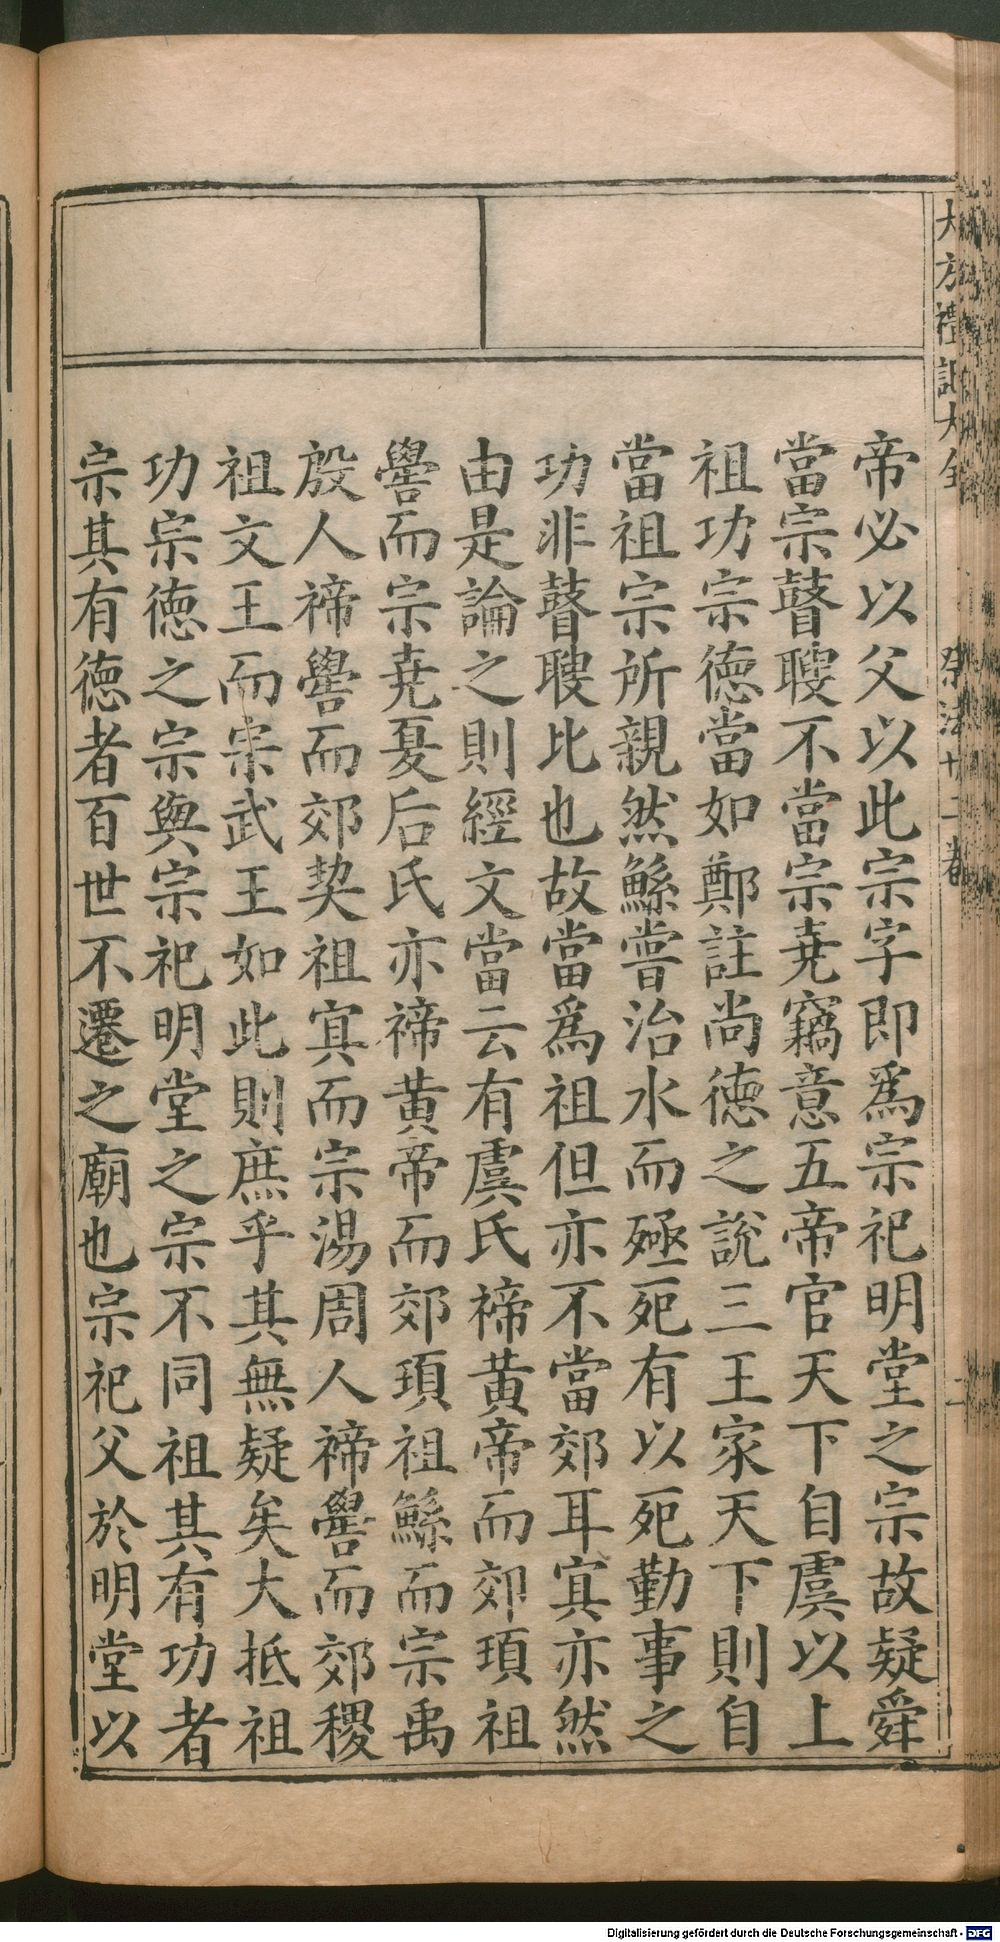 帝必以父以此宗字即爲宗祀明堂之宗故疑舜
當宗瞽瞍不當宗堯竊意五帝官天下自虞以上
祖功宗德當如鄭註尚德之說三王家天下則自
當祖宗所親然鯀嘗治水而殛死有以死勤事之
功非瞽瞍比也故當爲祖但亦不當郊耳冥亦然
由是論之則經文當云有虞氏禘黃帝而郊頊祖
嚳而宗堯夏后氏亦禘黃帝而郊頊祖鯀而宗禹
殷人禘嚳而郊契祖冥而宗湯周人禘嚳而郊稷
祖文王而宗武王如此則庶乎其無疑矣大抵祖
功宗德之宗與宗祀明堂之宗不同祖其有功者
宗其有德者百世不遷之廟也宗祀父於明堂以
大方禮記大全
祭法十二卷
二
Digitalisierung gefördert durch die Deutsche Forschungsgemeinschaft - DFG